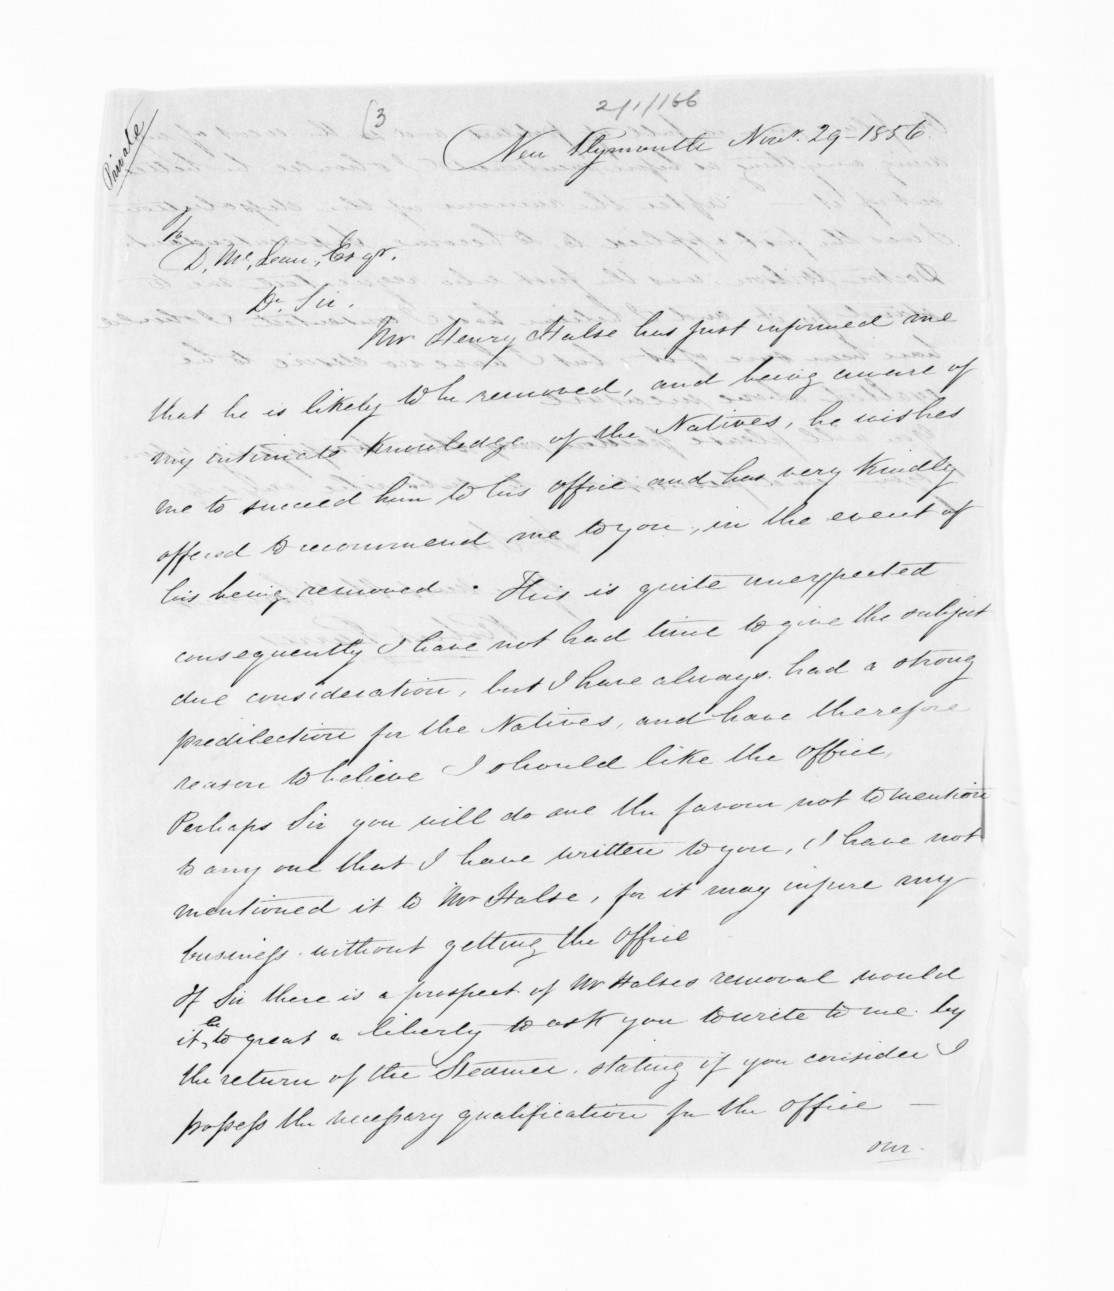 Private
(3
2/1/166
New Plymouth Novr. 29 - 1856.
To
D. Mc. Lean, Esqr.
Dr. Sir.
Mr Henry Halse has just informed me
that he is likely to be removed, and being aware of
my intimate knowledge of the Natives, he wishes
me to succeed him to his office and has very kindly
offered to recommend me to you, in the event of
his being removed. This is quite unexpected
consequently I have not had time to give the subject
due consideration, but I have always had a strong
predilection for the Natives, and have therefore
reason to believe I should like the office,
Perhaps Sir you will do me the favour not to mention
to any one that I have written to you, I have not
mentioned it to Mr Halse, for it may injure my
business without getting the office
If Sir there is a prospect of Mr Halses removal would
it be to great a liberty to ask you to write to me by
the return of the Steamer. stating if you consider I
possess the necessary qualification for the office —
over.